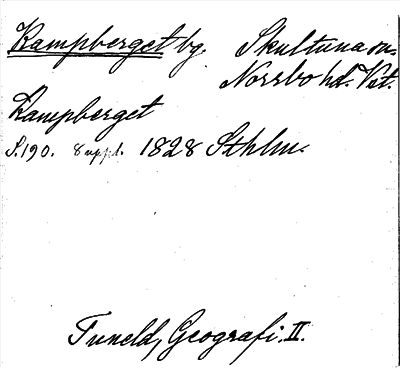 Kampberget by. Skultuna sn.
Norrbo hd. Vst.
Kampberget
S. 190. 8 uppl. 1828 Sthlm.
Tuneld, Geografi. II.